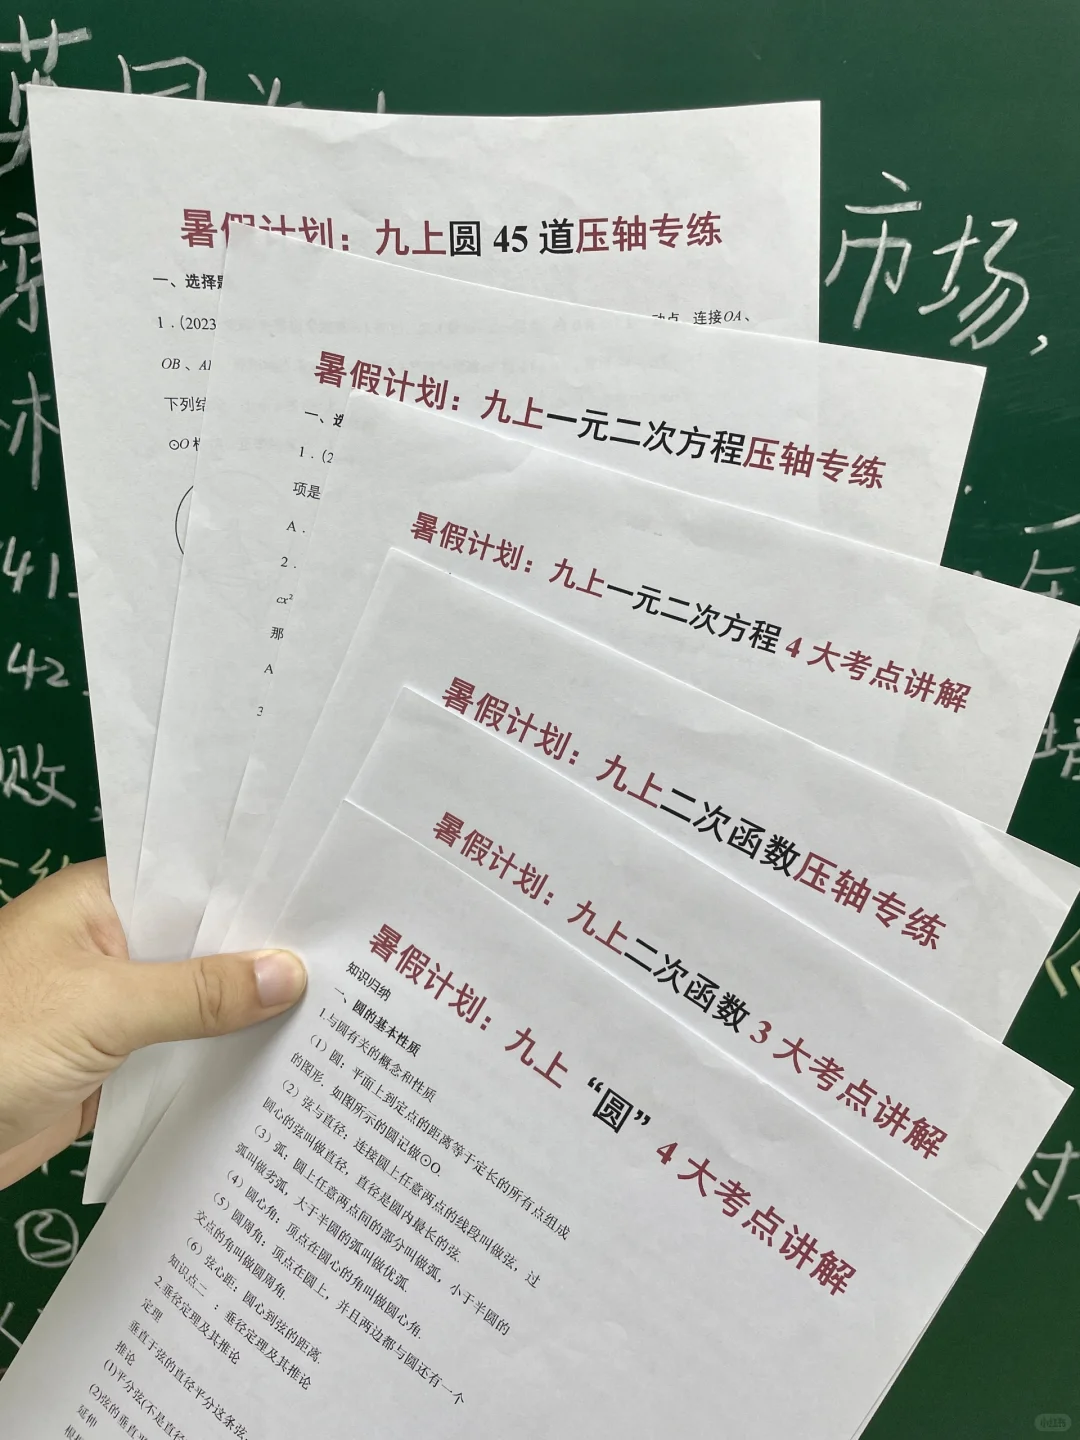 市场,
41.
42.
败,
③
暑假计划：九上圆 45 道压轴专练
一、选择题
1．(2023
动点，连接OA、
OB 、
下列结
⊙O
暑假计划：九上一元二次方程压轴专练
一、选
1．(2
项是
A．
2．
cx²
那
A
3
暑假计划：九上一元二次方程 4 大考点讲解
暑假计划：九上二次函数压轴专练
暑假计划：九上二次函数 3 大考点讲解
暑假计划：九上 “圆” 4 大考点讲解
知识归纳
一、圆的基本性质
1.与圆有关的概念和性质
（1）圆：平面上到定点的距离等于定长的所有点组成
的图形．如图所示的圆记做⊙O.
（2）弦与直径：连接圆上任意两点的线段叫做弦，过
圆心的弦叫做直径，直径是圆内最长的弦.
（3）弧：圆上任意两点间的部分叫做弧，小于半圆的
弧叫做劣弧，大于半圆的弧叫做优弧.
（4）圆心角：顶点在圆心的角叫做圆心角.
（5）圆周角：顶点在圆上，并且两边都与圆还有一个
交点的角叫做圆周角.
（6）弦心距：圆心到弦的距离.
知识点二 ：垂径定理及其推论
2.垂径定理及其推论
定理
垂直于弦的直径平分这条弦,
推论
(1)平分弦(不是直径
(2)弦的垂直平
延伸
根据